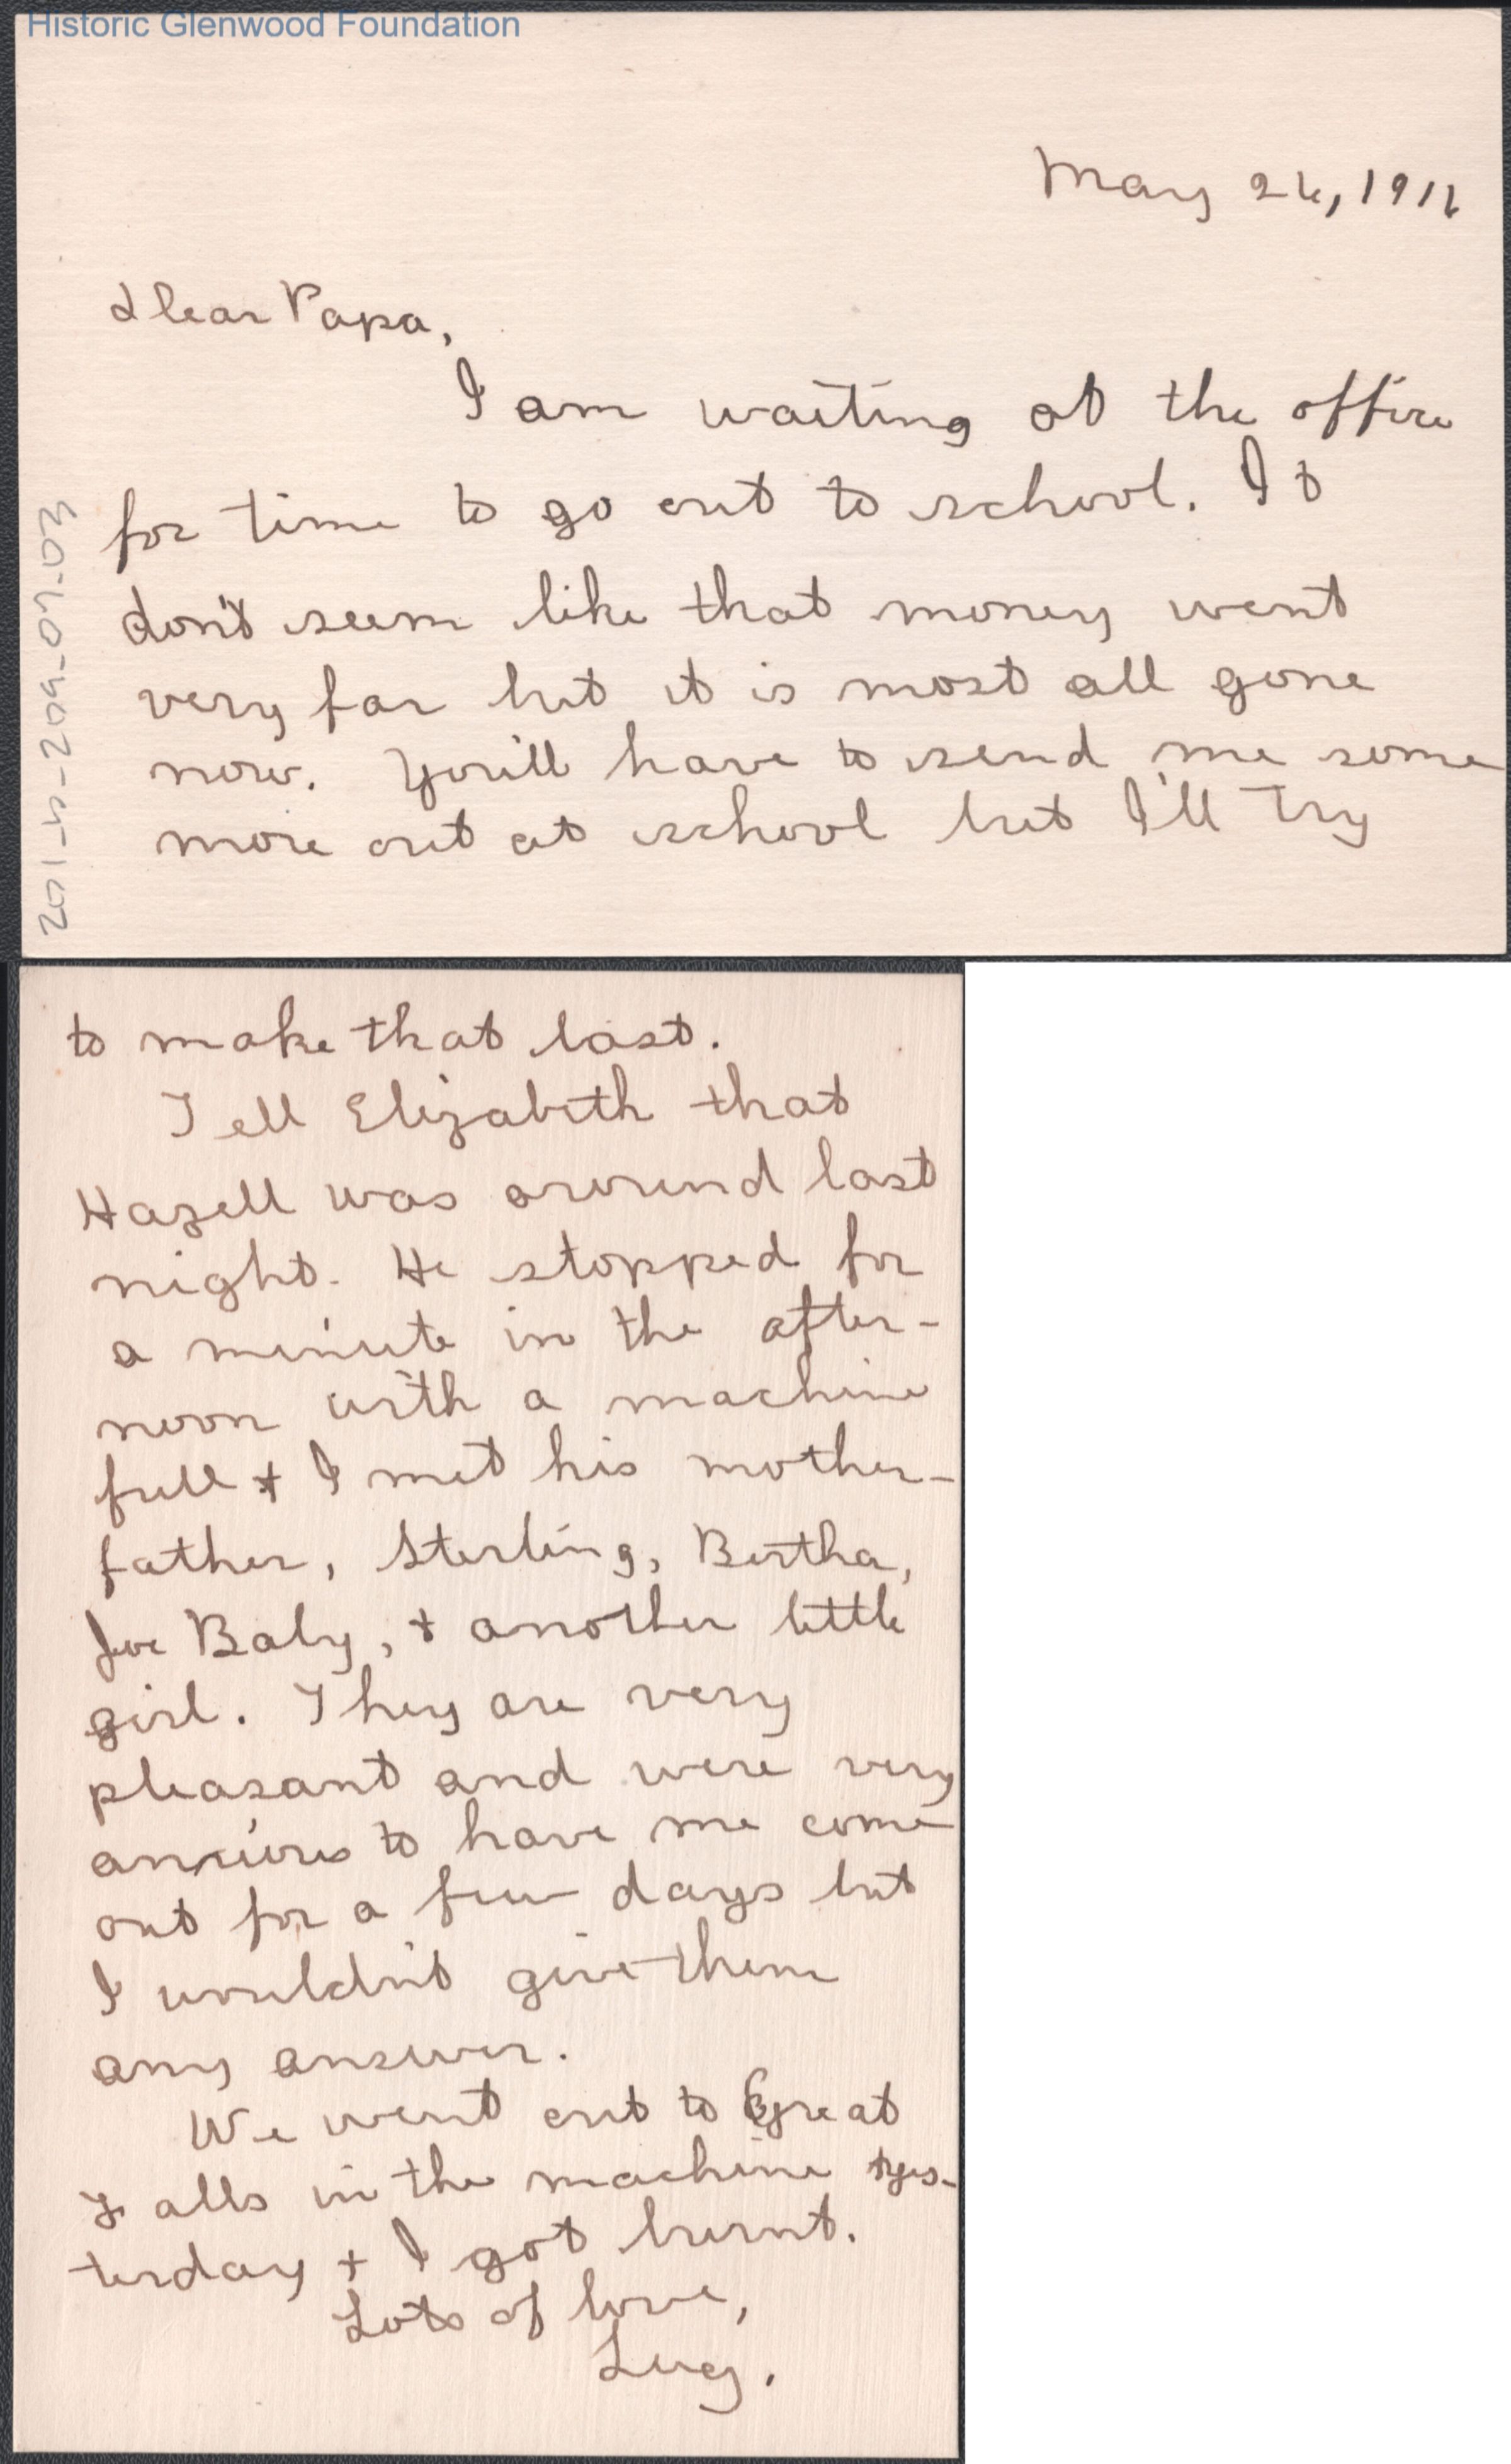 Historic Glenwood Foundation
May 26, 1916
Dear Papa,
I am waiting at the office
for time to go out to school. It
don't seem like that money went
very far but it is most all gone
now. You'll have to send me some
more out at school but I'll try
to make that last.
Tell Elizabeth that
Hazell was around last
night. He stopped for
a minute in the after-
noon with a machine
full + I met his mother-
father, Sterling, Bertha,
Joe Baby, + another little
girl. They are very
pleasant and were very
anxious to have me come
out for a few days but
I wouldn't give them
any answer.
We went out to Great
Falls in the machine yes-
terday + I got burnt.
Lots of love,
Lucy.